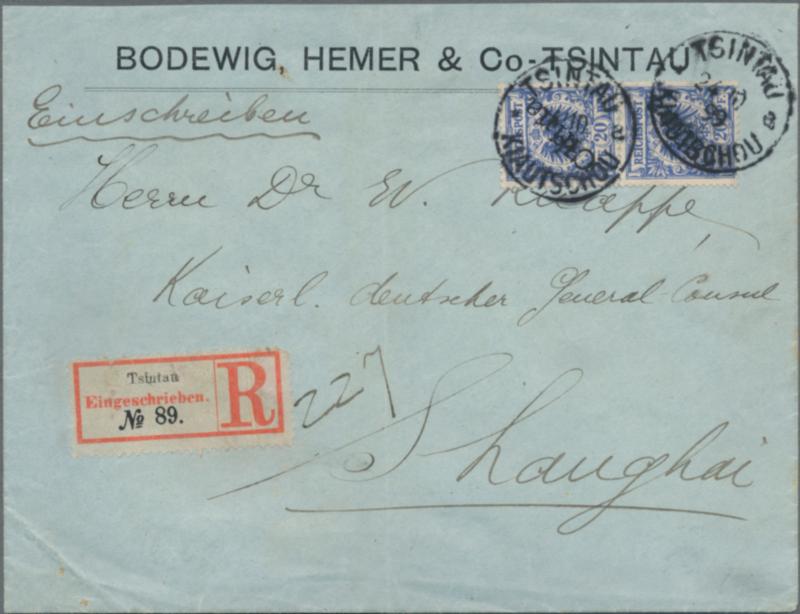 BODEWIG, HEMER & Co-TSINTAU
Einschreiben
TSINTAU
KIAUTSCHOU
TSINTAU
KIAUTSCHOU
REICHSPOST
20
Herrn Dr W. Knappe,
Kaiserl. deutscher General-Consul
Tsintau
Eingeschrieben.
№ 89.
R
227
Shanghai